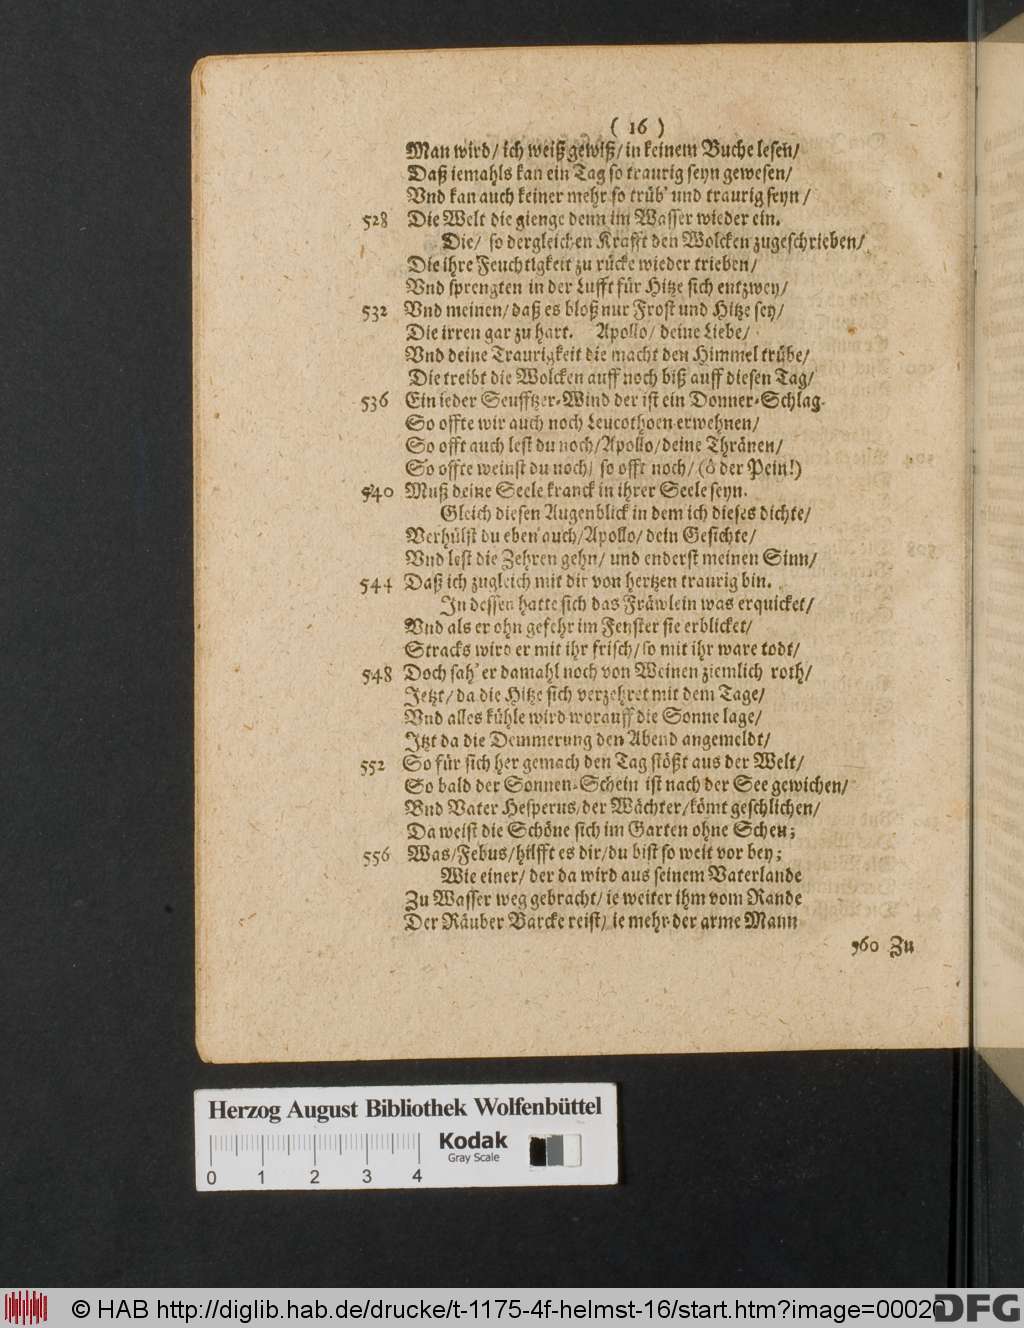 ( 16 )
Man wird/ ich weiß gewiß/ in keinem Buche lesen/
Daß iemahls kan ein Tag so traurig seyn gewesen/
Vnd kan auch keiner mehr so trüb' und traurig seyn /
528 Die Welt die gienge denn im Wasser wieder ein.
Die/ so dergleichen Krafft den Wolcken zugeschrieben/
Die ihre Feuchtigkeit zu rücke wieder trieben/
Vnd sprengten in der Lufft für Hitze sich entzwey/
532 Vnd meinen/ daß es bloß nur Frost und Hitze sey/
Die irren gar zu hart. Apollo/ deine Liebe/
Vnd deine Traurigkeit die macht den Himmel trübe/
Die treibt die Wolcken auff noch biß auff diesen Tag/
536 Ein ieder Seufftzer-Wind der ist ein Donner-Schlag.
So offte wir auch noch Leucothoen erwehnen/
So offt auch lest du noch/ Apollo/ deine Thränen/
So offte weinst du noch/ so offt noch/ (ô der Pein!)
540 Muß deine Seele kranck in ihrer Seele seyn.
Gleich diesen Augenblick in dem ich dieses dichte/
Verhülst du eben auch/ Apollo/ dein Gesichte/
Vnd lest die Zehren gehn/ und enderst meinen Sinn/
544 Daß ich zugleich mit dir von hertzen traurig bin.
In dessen hatte sich das Fräwlein was erquicket/
Vnd als er ohn gefehr im Fenster sie erblicket/
Stracks wird er mit ihr frisch/ so mit ihr ware todt/
548 Doch sah' er damahl noch von Weinen ziemlich roth/
Jetzt/ da die Hitze sich verzehret mit dem Tage/
Vnd alles kühle wird worauff die Sonne lage/
Itzt da die Demmerung den Abend angemeldt/
552 So für sich her gemach den Tag stößt aus der Welt/
So bald der Sonnen-Schein ist nach der See gewichen/
Vnd Vater Hesperus/ der Wächter/ kömt geschlichen/
Da weist die Schöne sich im Garten ohne Scheu;
556 Was/ Febus/ hilfft es dir/ du bist so weit vor bey;
Wie einer/ der da wird aus seinem Vaterlande
Zu Wasser weg gebracht/ ie weiter ihm vom Rande
Der Räuber Barcke reist/ ie mehr der arme Mann
560 Zu
Herzog August Bibliothek Wolfenbüttel
Kodak
Gray Scale
0 1 2 3 4
© HAB http://diglib.hab.de/drucke/t-1175-4f-helmst-16/start.htm?image=00020
DFG